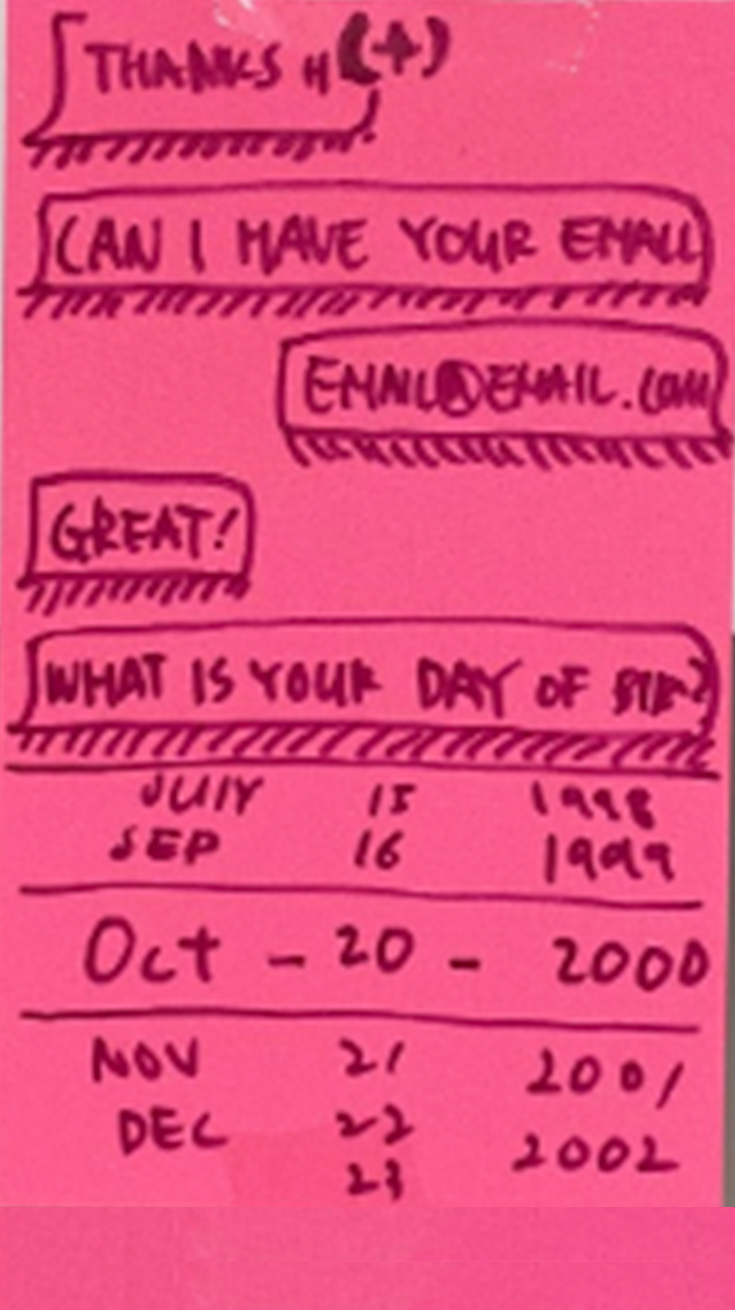 THANKS H (+)
CAN I HAVE YOUR EMAIL
EMAIL@EMAIL.com
GREAT!
WHAT IS YOUR DAY OF BIR?
JULY 15 1998
SEP 16 1999
Oct - 20 - 2000
NOV 21 2001
DEC 22 2002
23